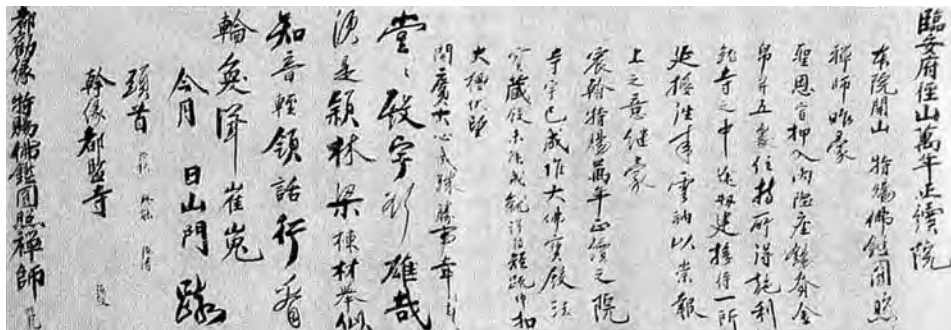 臨安府徑山萬年正續院
本院開山 特賜佛鑑圓照
禪師昨蒙
聖恩宣押入內陞座錫賚金
帛并五處住持所得施利
寺之中途建接待一所
延接往來雲衲以崇報
上之意繼蒙
宸翰特賜萬年正續之院
寺宇已成惟大佛寶殿法
寶藏殿未能成就謹短疏仰扣
大檀伏望
開廣大心成殊勝事幸甚
堂〻殿宇彩雄哉
須是穎林梁棟材舉似
知音輕領話行看
輪奐聳崔嵬
今月 日山門 疏
頭首
幹緣都監寺
都勸緣 特賜佛鑑圓照禪師